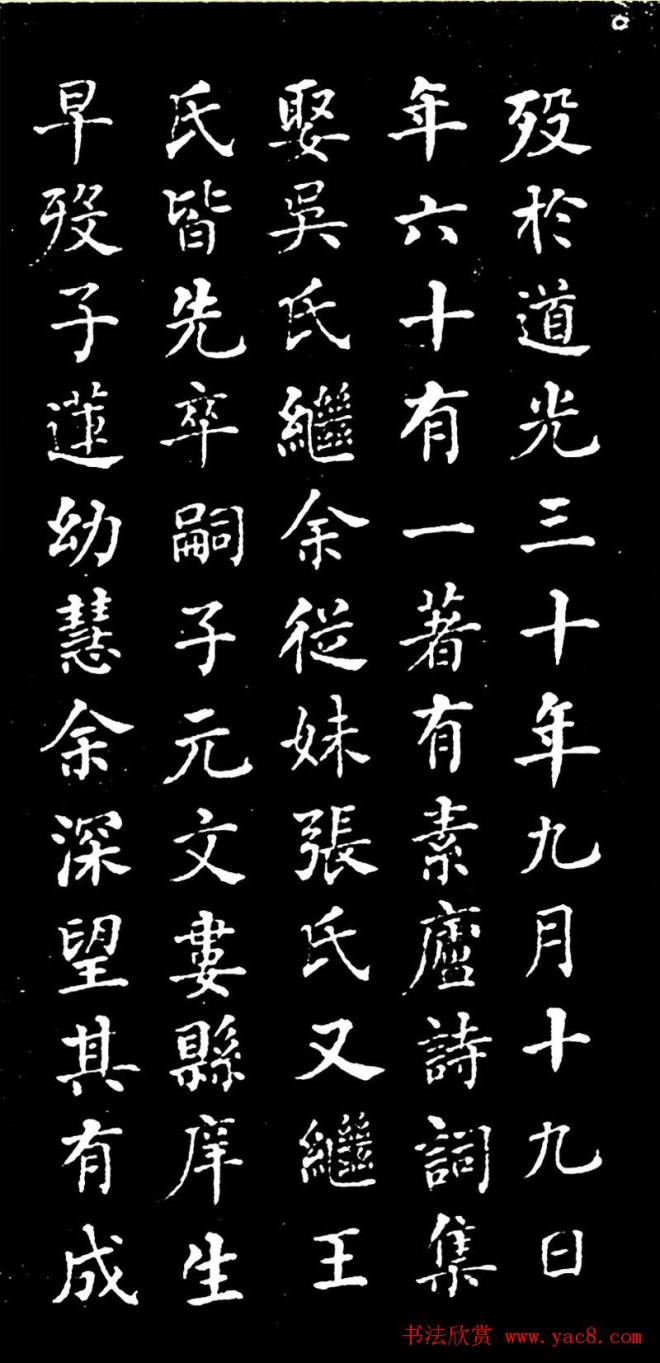 歿於道光三十年九月十九日
年六十有一著有素廬詩詞集
娶吳氏繼余從妹張氏又繼王
氏皆先卒嗣子元文婁縣庠生
早歿子蓮幼慧余深望其有成
书法欣赏 www.yac8.com